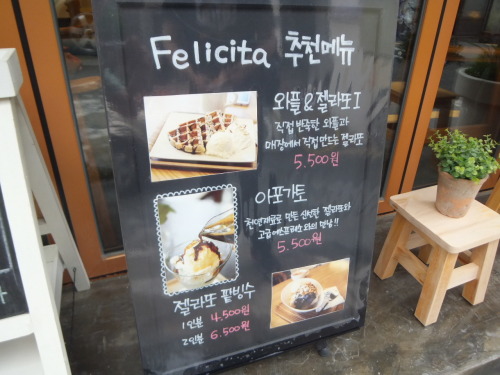 Felicita 추천메뉴
와플&젤라또 I
직접 반죽한 와플과
매장에서 직접 만드는 젤라또
5.500원
아포가토
천연재료로 만든 신선한 젤라또와
고급에스프레소와의 만남!!
5.500원
젤라또 팥빙수
1인분 4.500원
2인분 6.500원